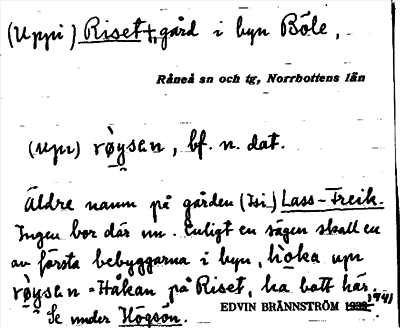 (Uppi) Riset +, gård i byn Böle,
Råneå sn och tg, Norrbottens län
(upı) røysen, bf. n. dat.
Äldre namn på gården (Isi) Lass-Freik.
Ingen bor där nu. Enligt en sägen skall en
av första bebyggarna i byn, hoka up
røysen = Håkan på Riset, ha bott här.
Se under Högson.
EDVIN BRÄNNSTRÖM 1941